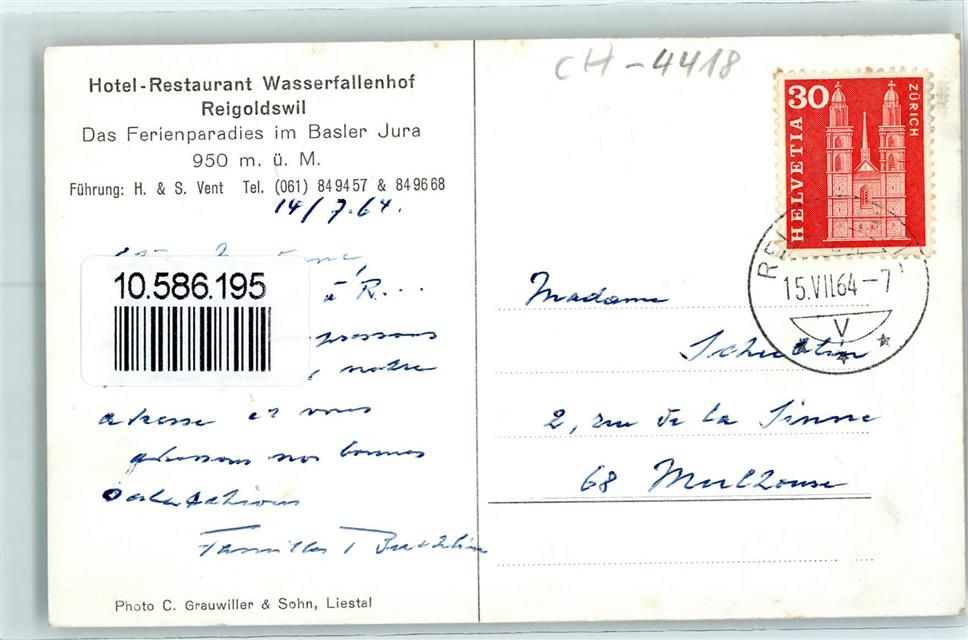 Hotel-Restaurant Wasserfallenhof
Reigoldswil
Das Ferienparadies im Basler Jura
950 m. ü. M.
Führung: H. & S. Vent Tel. (061) 84 94 57 & 84 96 68
14/7.64.
10.586.195
à R...
notre
adresse et vous
adressons nos bonnes
Salutations
Photo C. Grauwiller & Sohn, Liestal
CH-4418
30
ZÜRICH
HELVETIA
15.VII.64-7
V
Madame
2, rue de la Sinne
68 Mulhouse